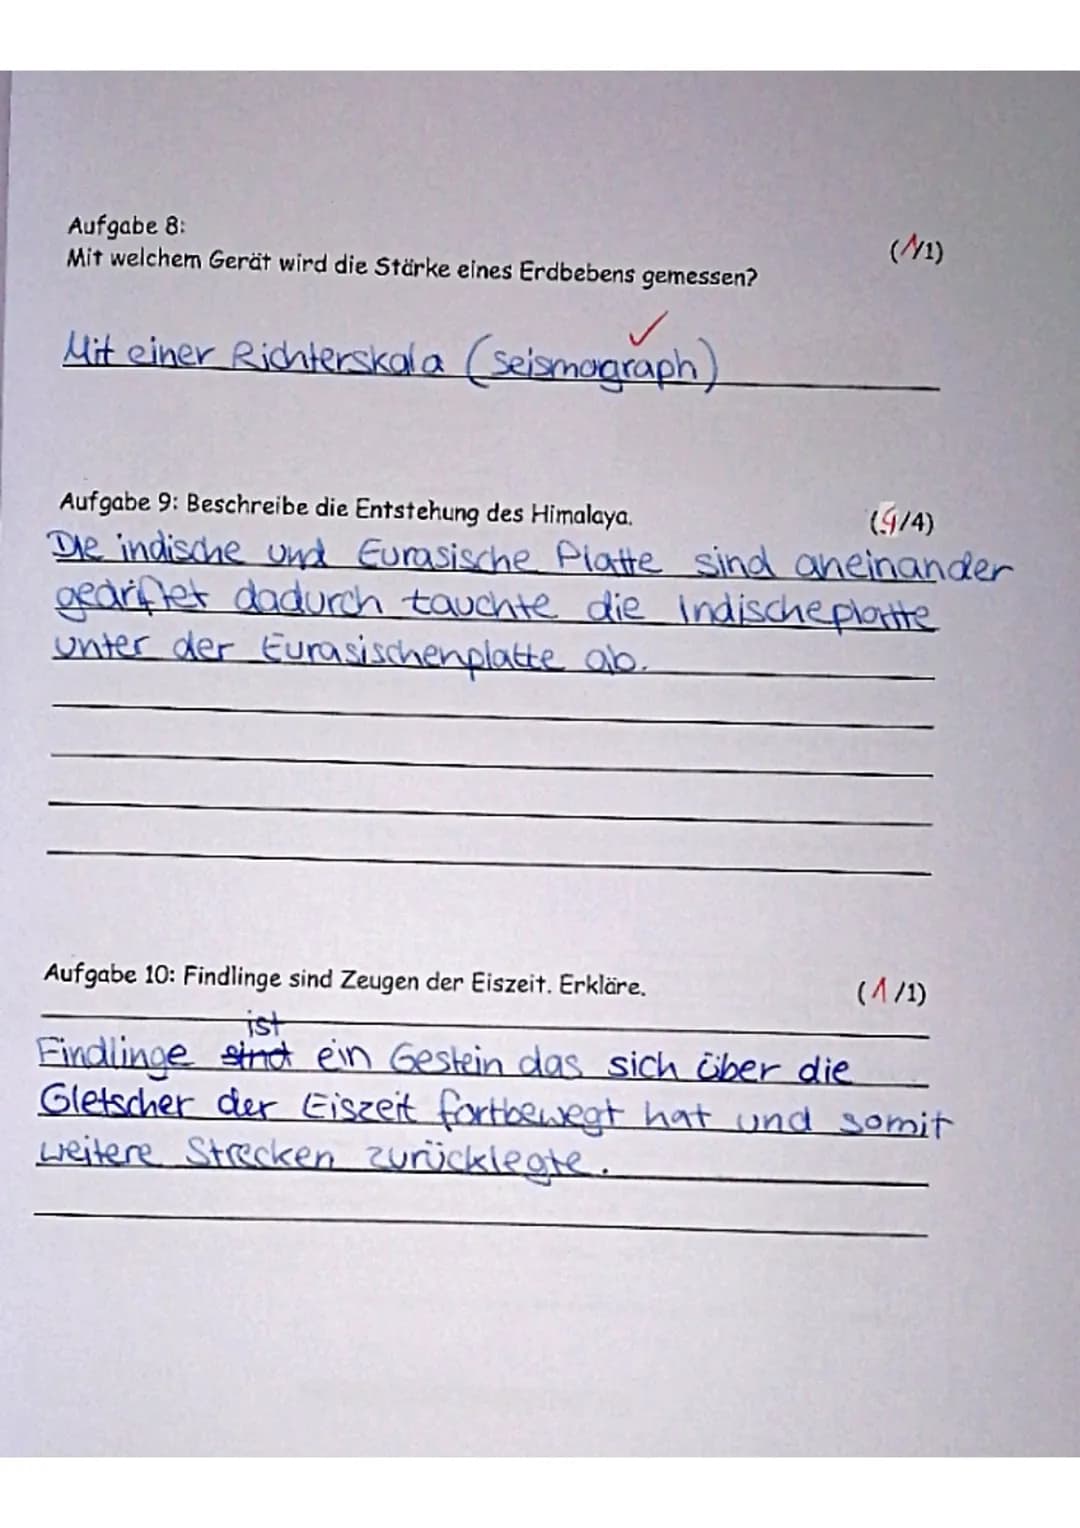 Aufgabe 8:
(1/1)
Mit welchem Gerät wird die Stärke eines Erdbebens gemessen?
Mit einer Richterskala (seismograph)
Aufgabe 9: Beschreibe die Entstehung des Himalaya.
(4/4)
Die indische und Eurasische Platte sind aneinander
gedriftet dadurch tauchte die Indischeplatte
unter der Eurasischenplatte ab.
Aufgabe 10: Findlinge sind Zeugen der Eiszeit. Erkläre.
(1/1)
ist
Findlinge sind ein Gestein das sich über die
Gletscher der Eiszeit fortbewegt hat und somit
weitere Strecken zurücklegte.